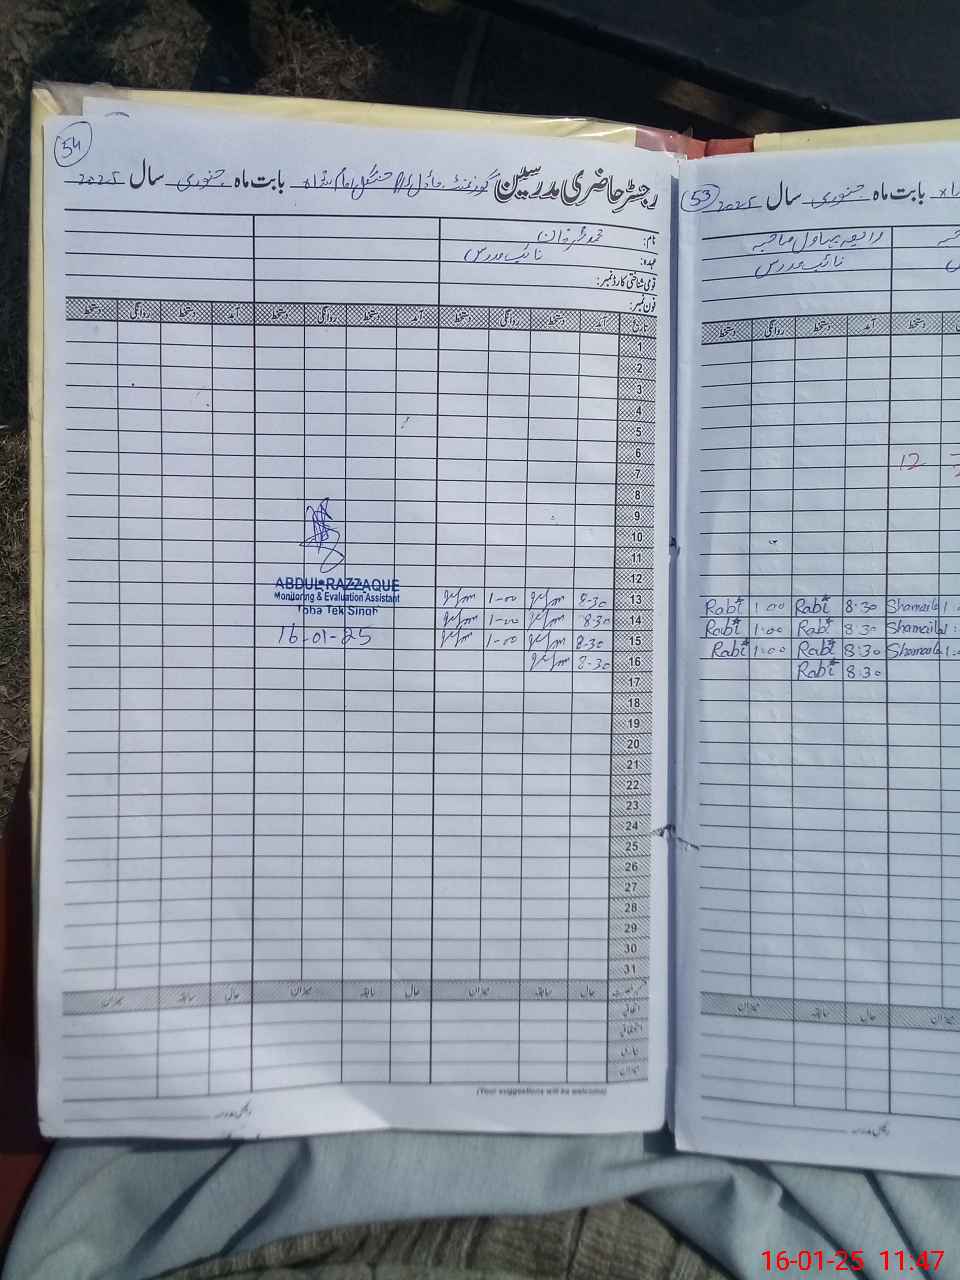 54
رجسٹر حاضری مدرسین گورنمنٹ ماڈل بابت ماہ جنوری سال 2025
نام: محمد عمر خان
عہدہ: نائب مدرس
قومی شناختی کارڈ نمبر:
فون نمبر:
تاریخ آمد دستخط روانگی دستخط آمد دستخط روانگی دستخط آمد دستخط روانگی دستخط
1
2
3
4
5
6
7
8
9
10
11
12
13 8-30 1-00
14 8-30 1-00
15 8-30 1-00
16 8-30
ABDUL RAZZAQUE
Monitoring & Evaluation Assistant
Toba Tek Singh
16-01-25
17
18
19
20
21
22
23
24
25
26
27
28
29
30
31
حال سابقہ میزان حال سابقہ میزان حال سابقہ میزان
اتفاقیہ
استحقاقیہ
بیماری
میزان
(Your suggestions will be welcome)
53 بابت ماہ جنوری سال 2025
نائب مدرس
دستخط آمد دستخط روانگی دستخط
12
Shamaila 8:30 Rabi 1:00 Rabi
Shamaila 8:30 Rabi 1:00 Rabi
Shamaila 8:30 Rabi 1:00 Rabi
8:30 Rabi
میزان حال سابقہ میزان
16-01-25 11:47